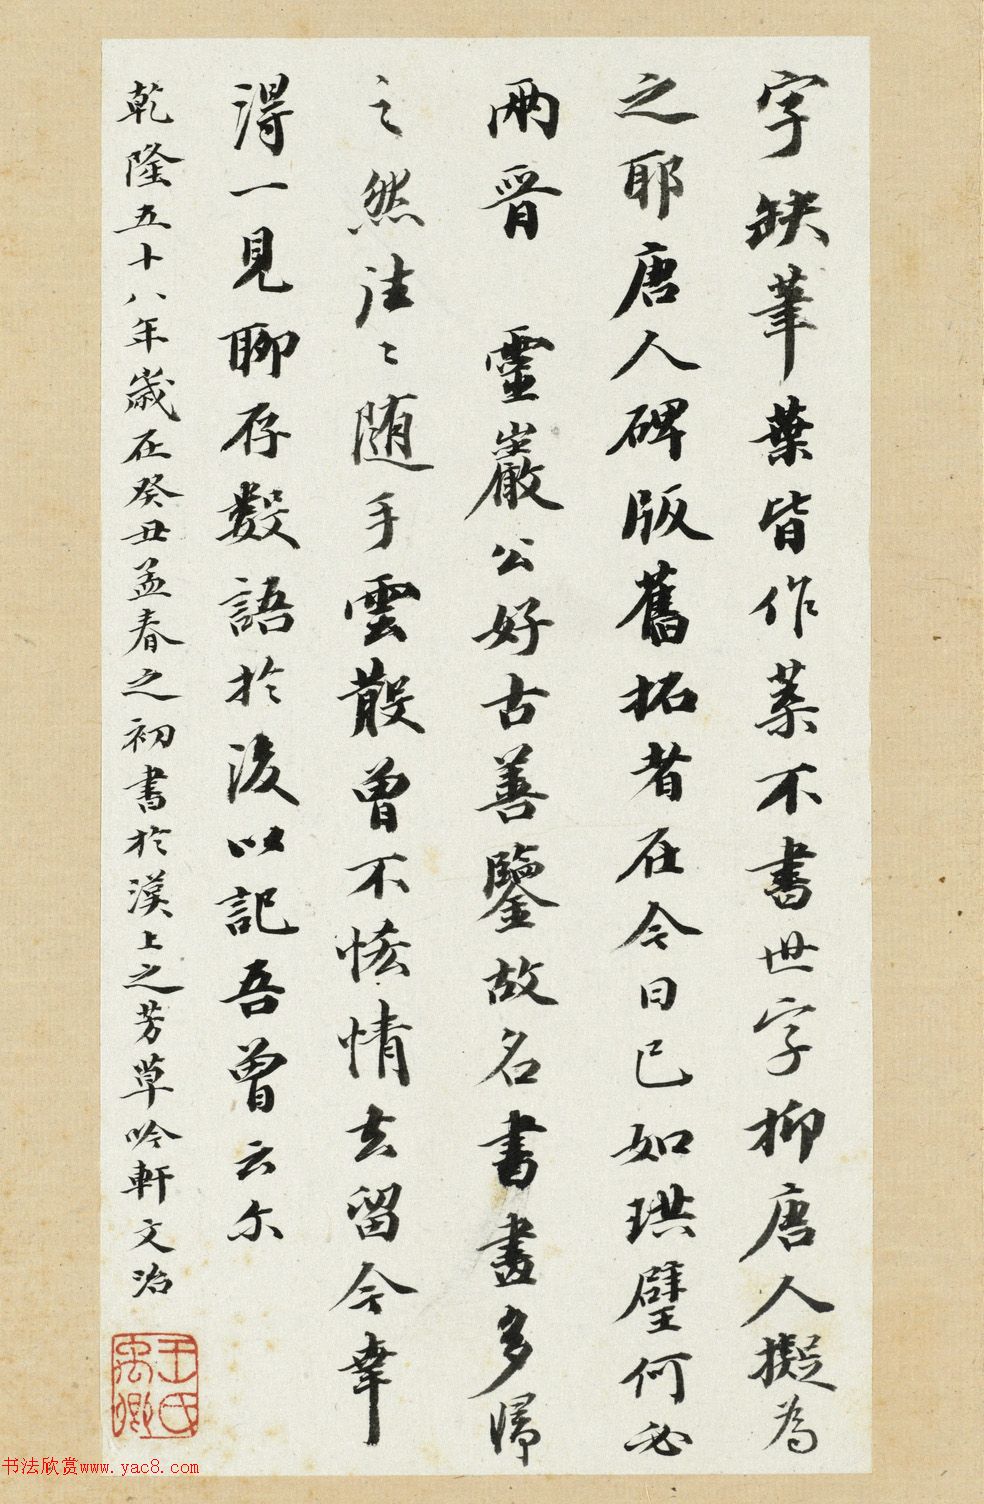 字缺筆葉皆作菜不書世字抑唐人擬為
之耶唐人碑版舊拓者在今日已如珙璧何必
兩晉 靈巖公好古善鑒故名書畫多歸
之然往〻随手雲散曾不悋情去留今幸
淂一見聊存數語於後以記吾曾云尔
乾隆五十八年歲在癸丑孟春之初書於漢上之芳草吟軒文治
王氏禹卿
书法欣赏www.yac8.com